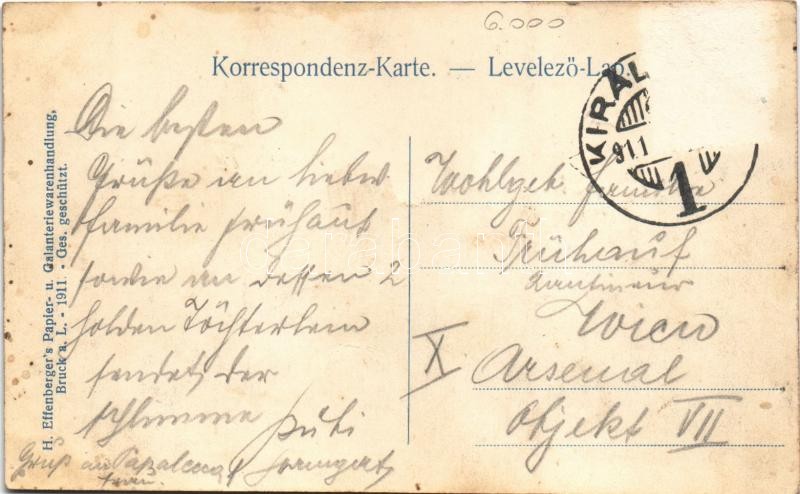 6.000
Korrespondenz-Karte. — Levelező-Lap.
KIRÁL
911
1
H. Effenberger's Papier- u. Galanteriewarenhandlung,
Bruck a. L. - 1911. - Ges. geschützt.
Die besten
Grüße an liebe
Familie Frühauf
sowie an dessen 2
holden Töchterlein
sendet der
schlimme
Gruß an
Wohlgeb. Familie
Frühauf
Kantineur
Wien
X Arsenal
Objekt VII
darabanth